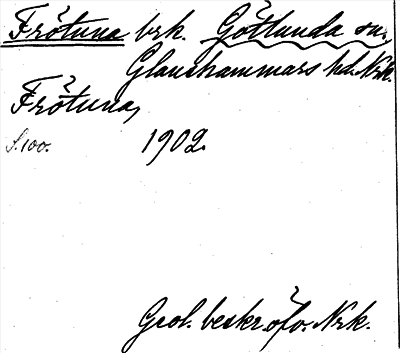 Frötuna brk. Götlunda sn.
Glanshammars hd. Nrk.
Frötuna,
S. 100. 1902.
Geol. beskr. öfv. Nrk.